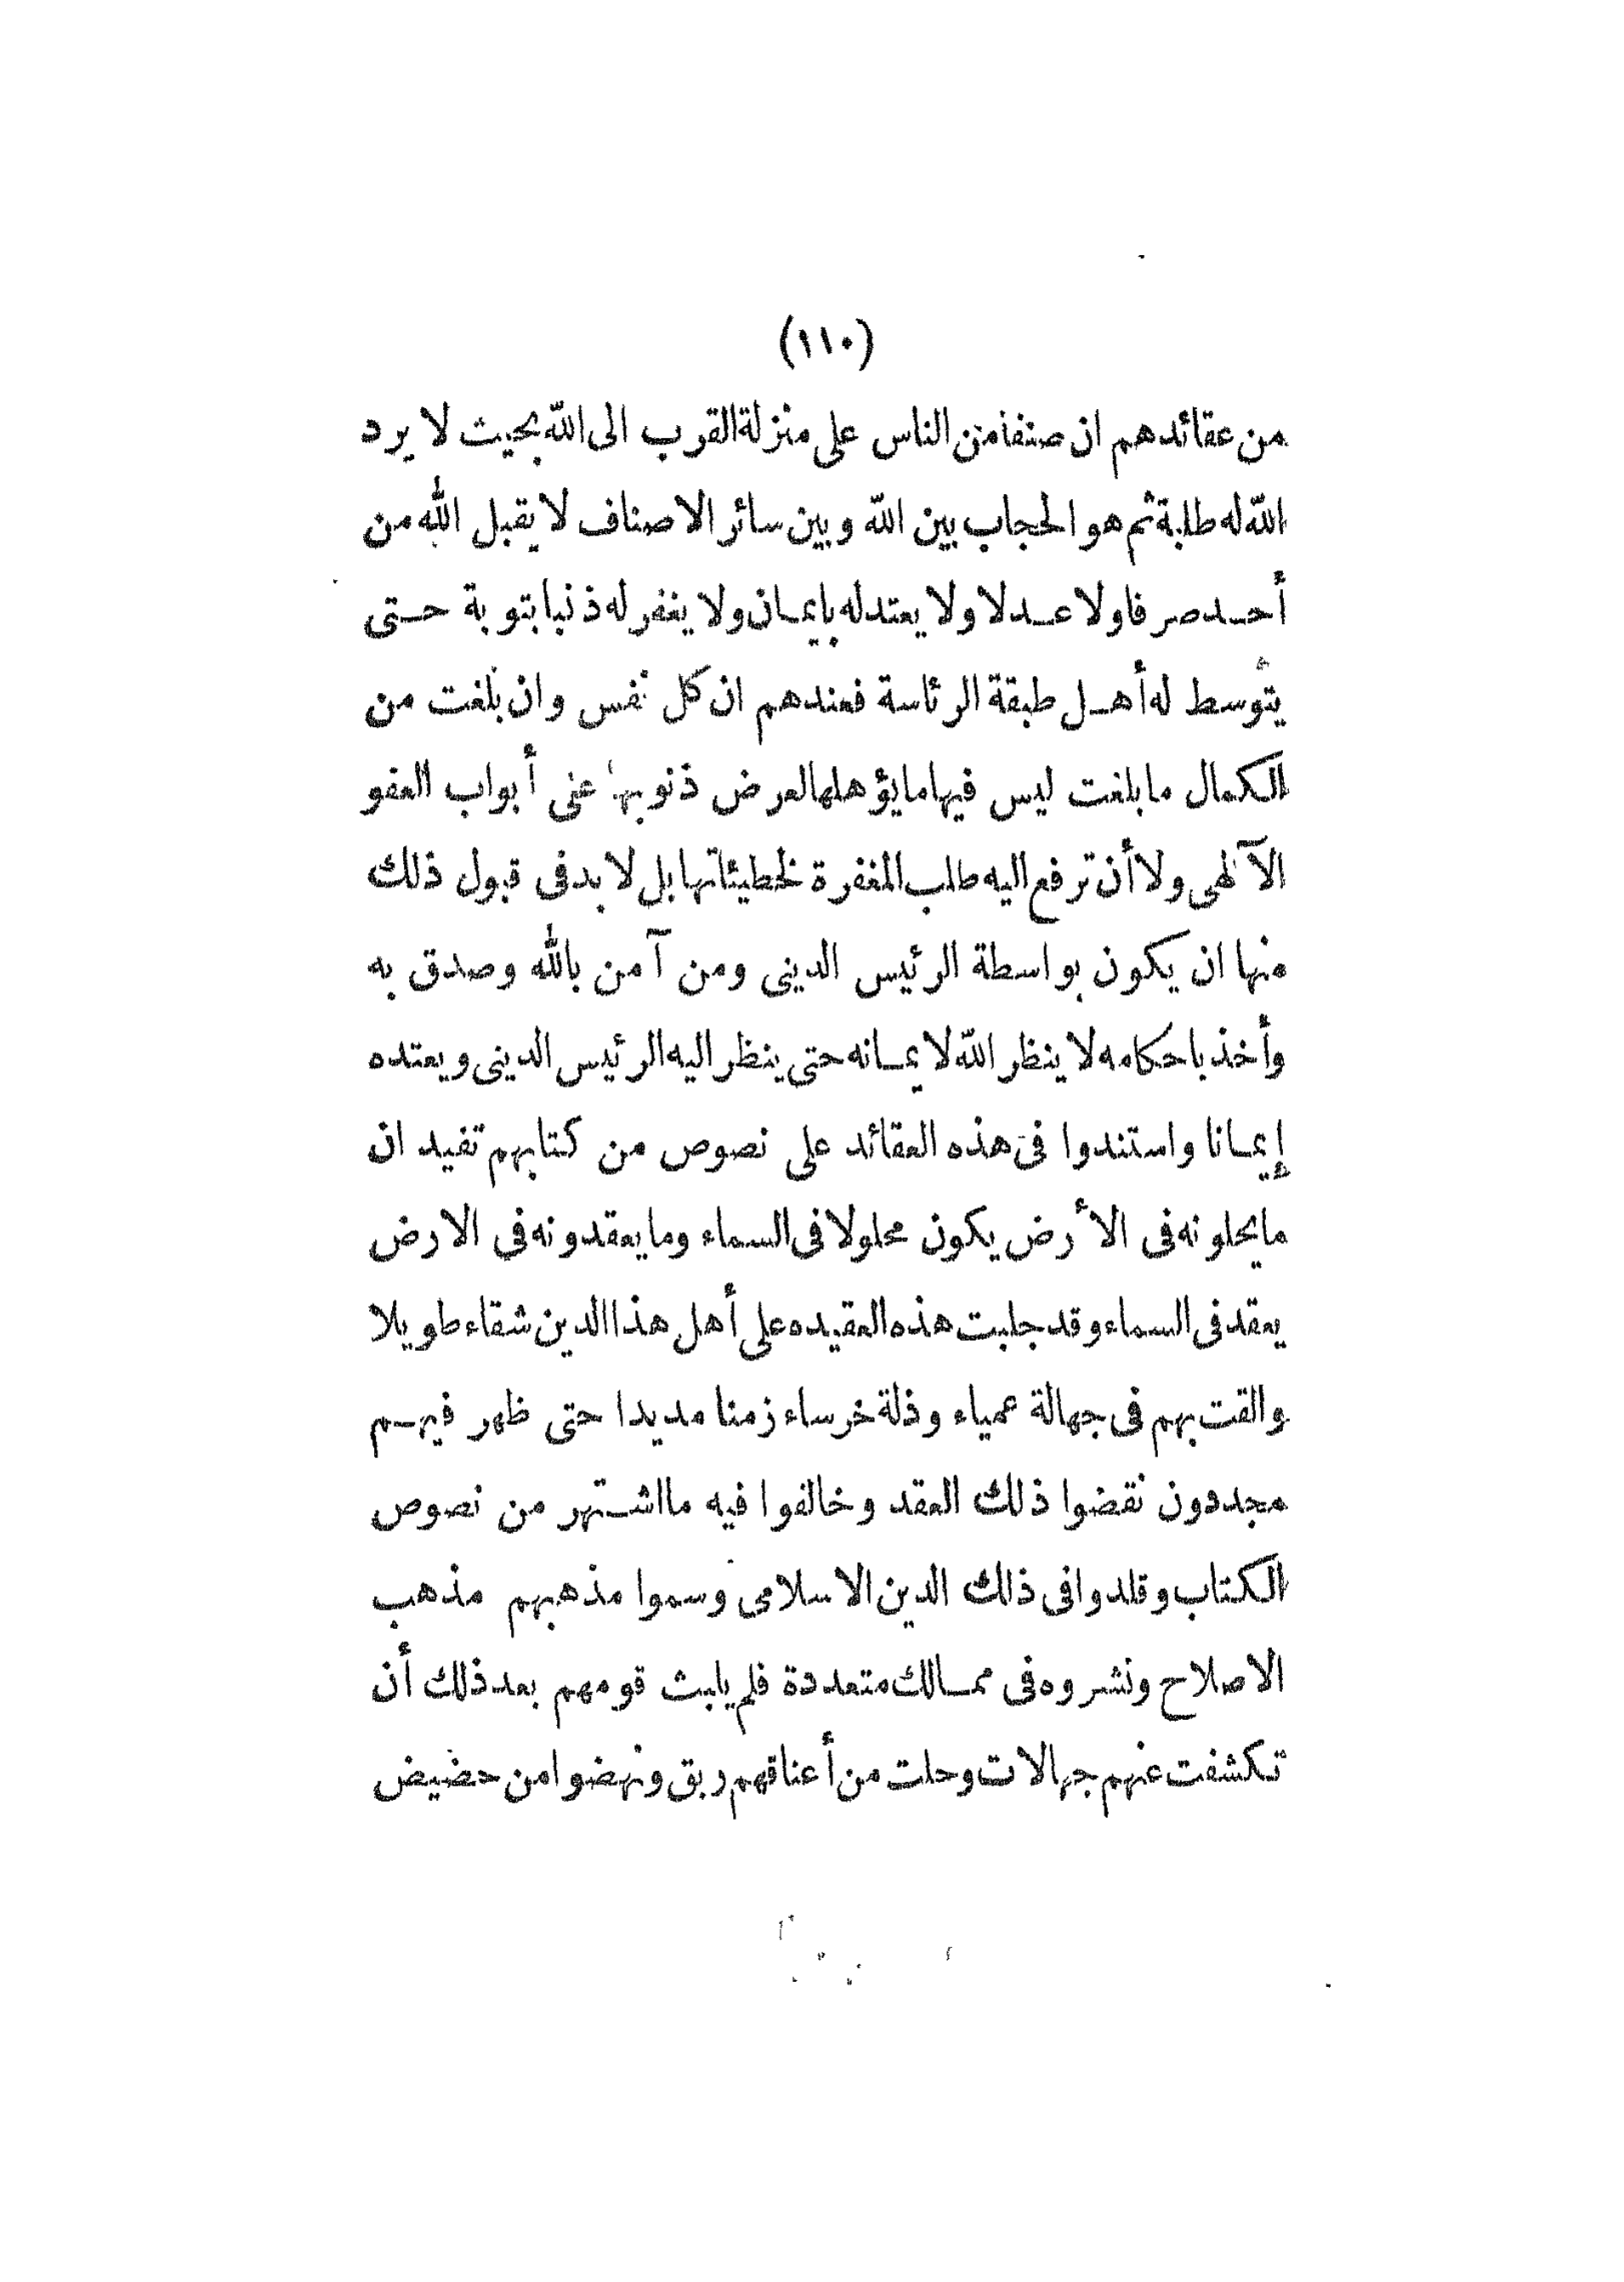 (١١٠)
من عقائدهم ان صنفا من الناس على منزلة القرب الى الله بحيث لا يرد
الله له طلبة ثم هو الحجاب بين الله وبين سائر الاصناف لا يقبل الله من
أحد صرفا ولا عدلا ولا يعتد له بايمان ولا يغفر له ذنبا بتوبة حتى
يتوسط له أهل طبقة الرئاسة فعندهم ان كل نفس وان بلغت من
الكمال ما بلغت ليس فيها ما يؤهلها لعرض ذنوبها على أبواب العفو
الآلهى ولا أن ترفع اليه طلب المغفرة لخطيئاتها بل لا بد فى قبول ذلك
منها ان يكون بواسطة الرئيس الدينى ومن آمن بالله وصدق به
وأخذ باحكامه لا ينظر الله لايمانه حتى ينظر اليه الرئيس الدينى ويعتده
إيمانا واستندوا فى هذه العقائد على نصوص من كتابهم تفيد ان
ما يحلونه فى الأرض يكون محلولا فى السماء وما يعقدونه فى الارض
يعقد فى السماء وقد جلبت هذه العقيده على أهل هذا الدين شقاء طويلا
والقت بهم فى جهالة عمياء وذلة خرساء زمنا مديدا حتى ظهر فيهم
مجددون نقضوا ذلك العقد وخالفوا فيه ما اشتهر من نصوص
الكتاب وقلدوا فى ذلك الدين الاسلامى وسموا مذهبهم مذهب
الاصلاح ونشروه فى ممالك متعددة فلم يلبث قومهم بعد ذلك أن
تكشفت عنهم جهالات وحلت من أعناقهم ربق ونهضوا من حضيض